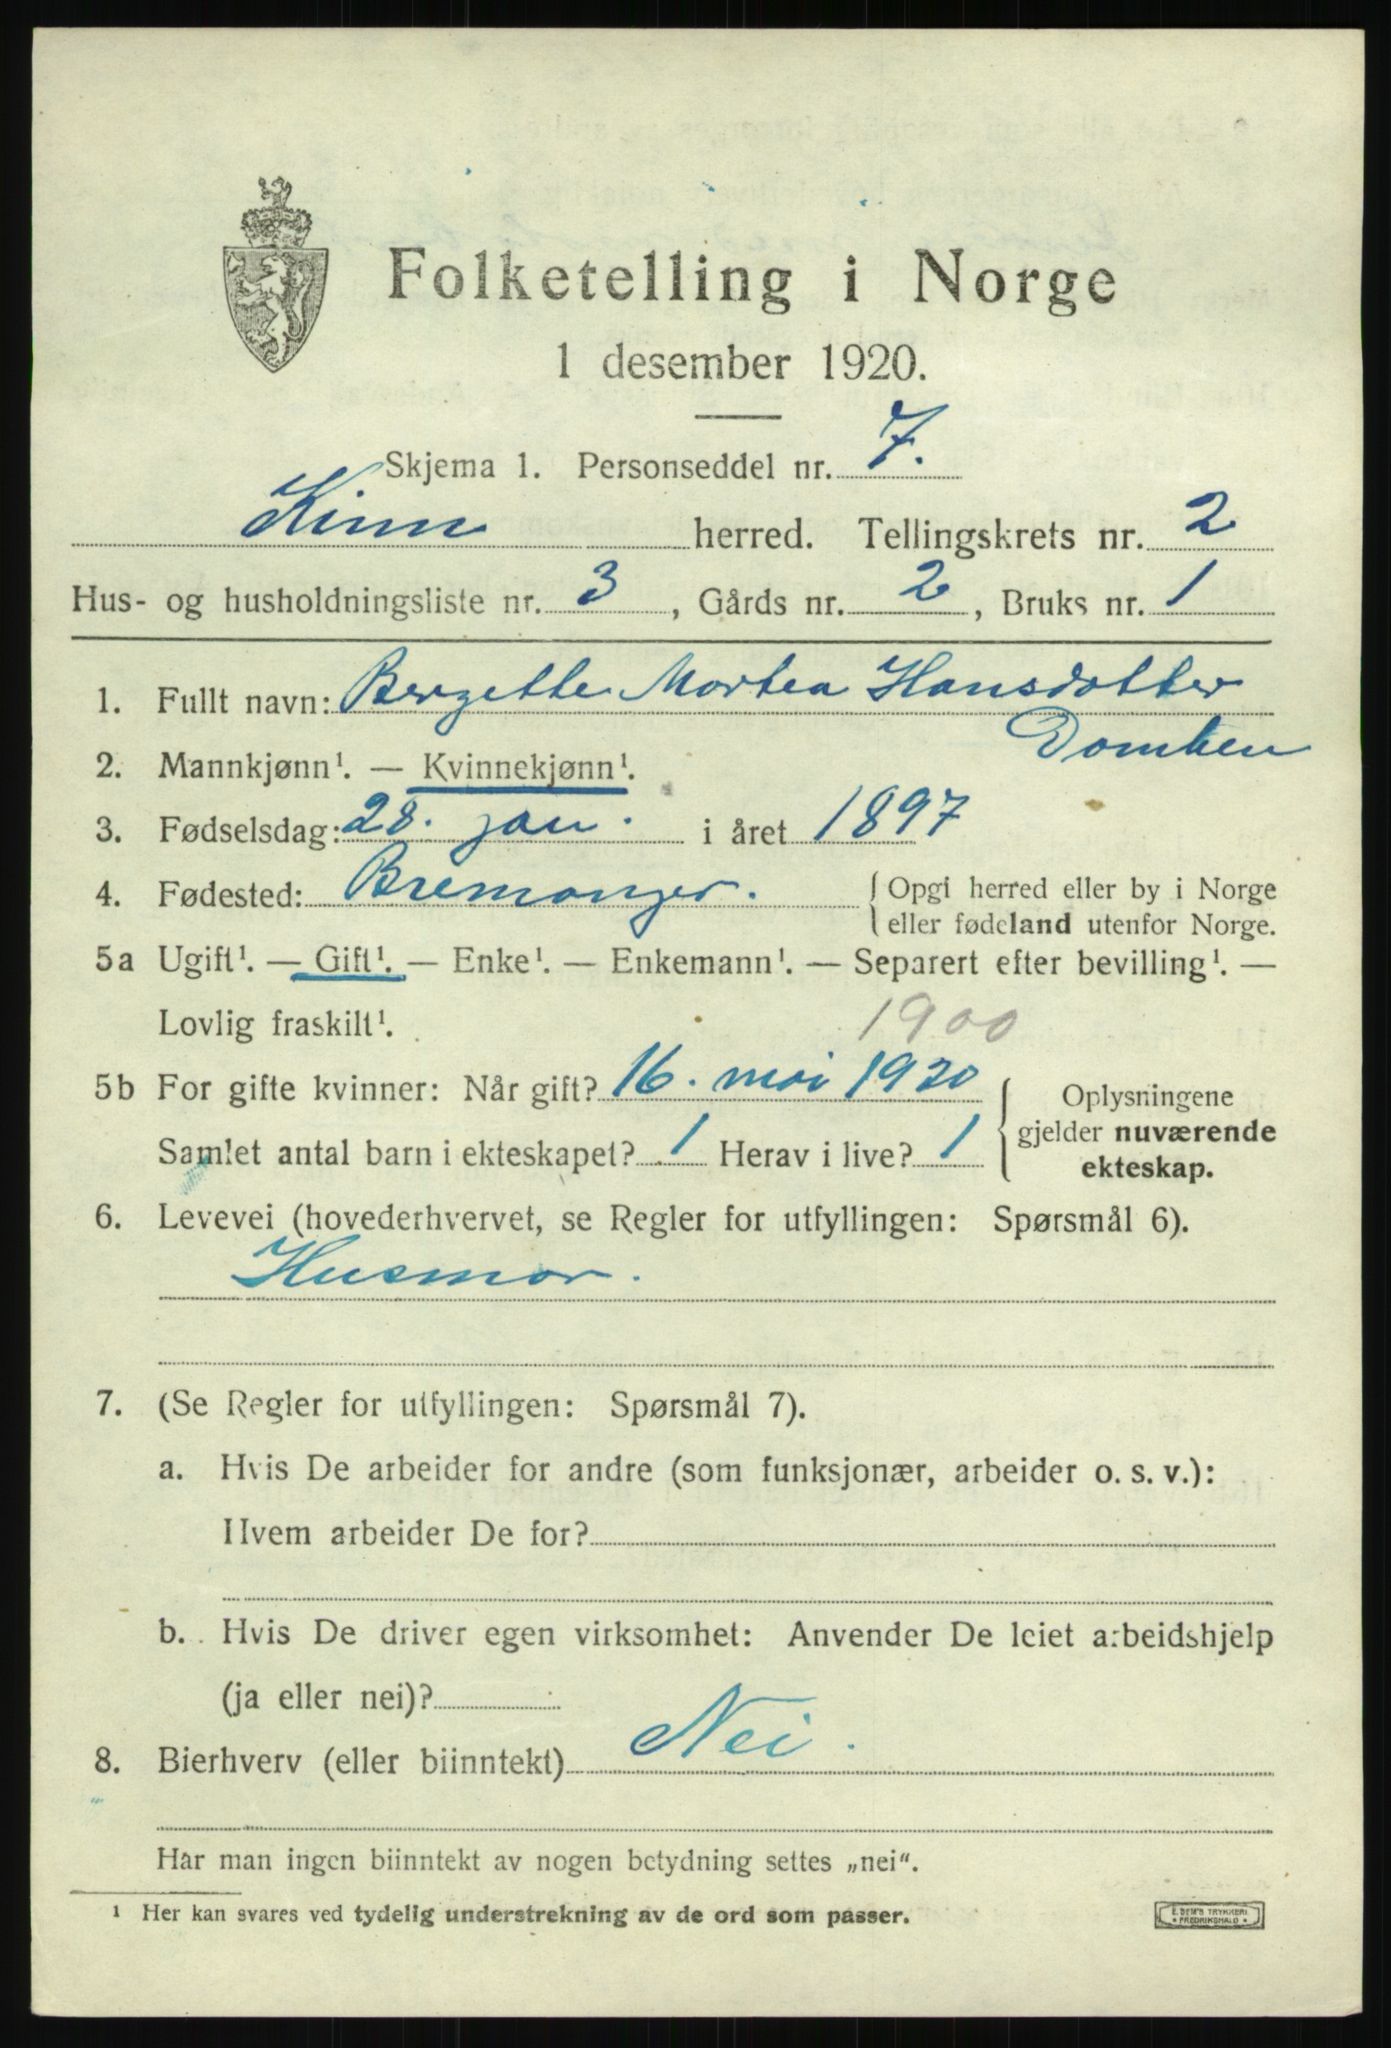 Folketelling i Norge
1 desember 1920.
Skjema 1. Personseddel nr. 7.
Kinn herred. Tellingskrets nr. 2
Hus- og husholdningsliste nr. 3, Gårds nr. 2, Bruks nr. 1
1. Fullt navn: Bergette Martea Hansdotter
Domben
2. Mannkjønn¹. — Kvinnekjønn¹.
3. Fødselsdag: 28. jan. i året 1897
4. Fødested: Bremanger. Opgi herred eller by i Norge
eller fødeland utenfor Norge.
5a Ugift¹. — Gift¹. — Enke¹. — Enkemann¹. — Separert efter bevilling¹. —
Lovlig fraskilt¹. 1900
5b For gifte kvinner: Når gift? 16. mai 1920 Oplysningene
gjelder nuværende
Samlet antal barn i ekteskapet? 1 Herav i live? 1
ekteskap.
6. Levevei (hovederhvervet, se Regler for utfyllingen: Spørsmål 6).
Husmor.
7. (Se Regler for utfyllingen: Spørsmål 7).
a. Hvis De arbeider for andre (som funksjonær, arbeider o. s. v.):
Hvem arbeider De for?
b. Hvis De driver egen virksomhet: Anvender De leiet arbeidshjelp
(ja eller nei)?
8. Bierhverv (eller biinntekt) Nei.
Har man ingen biinntekt av nogen betydning settes „nei“.
¹ Her kan svares ved tydelig understrekning av de ord som passer.
E. SEM'S TRYKKERI
* FREDRIKSHALD *